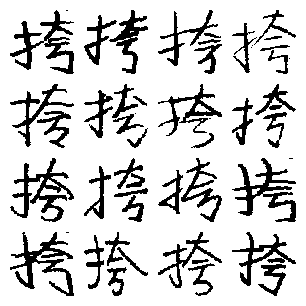 挎挎挎挎
挎挎挎挎
挎挎挎挎
挎挎挎挎